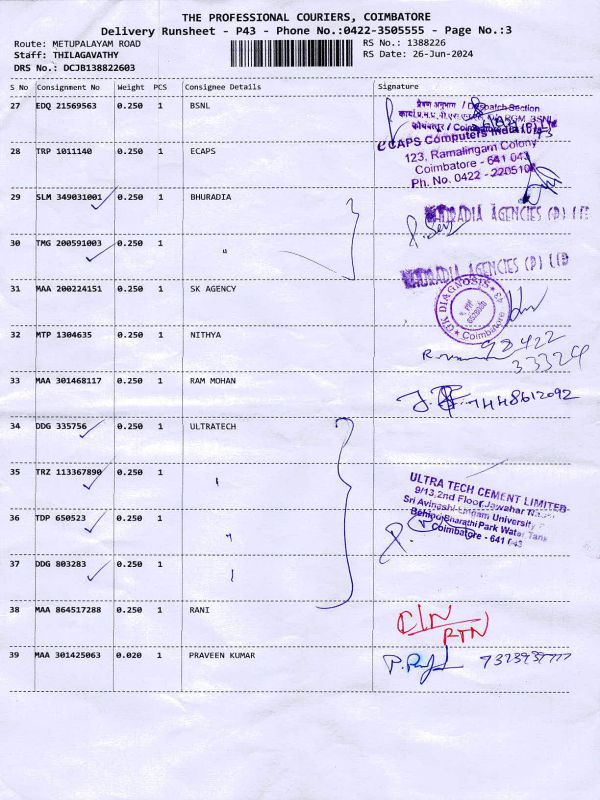 THE PROFESSIONAL COURIERS, COIMBATORE
Delivery Runsheet - P43 - Phone No.:0422-3505555 - Page No.:3
Route: METUPALAYAM ROAD
Staff: THILAGAVATHY
DRS No.: DCJB138822603
RS No.: 1388226
RS Date: 26-Jun-2024
S No Consignment No Weight PCS Consignee Details Signature
27 EDQ 21569563 0.250 1 BSNL
प्रेषण अनुभाग / Despatch Section
28 TRP 1011140 0.250 1 ECAPS
ECAPS Computers India (P) Ltd
123, Ramalingam Colony
Coimbatore - 641 043
Ph. No. 0422 - 2205108
29 SLM 349031001 0.250 1 BHURADIA
BHURADIA AGENCIES (P) LTD
30 TMG 200591003 0.250 1 "
BHURADIA AGENCIES (P) LTD
31 MAA 200224151 0.250 1 SK AGENCY
DIAGNOSIS
Coimbatore - 43
32 MTP 1304635 0.250 1 NITHYA
98422
33324
33 MAA 301468117 0.250 1 RAM MOHAN
7448612092
34 DDG 335756 0.250 1 ULTRATECH
35 TRZ 113367890 0.250 1
ULTRA TECH CEMENT LIMITED
9/13, 2nd Floor, Jawahar
Sri Avinashi Lingam University
36 TDP 650523 0.250 1 "
Behind Bharathi Park Water Tank
Coimbatore - 641 043
37 DDG 803283 0.250 1
38 MAA 864517288 0.250 1 RANI
C/N
RTN
39 MAA 301425063 0.020 1 PRAVEEN KUMAR